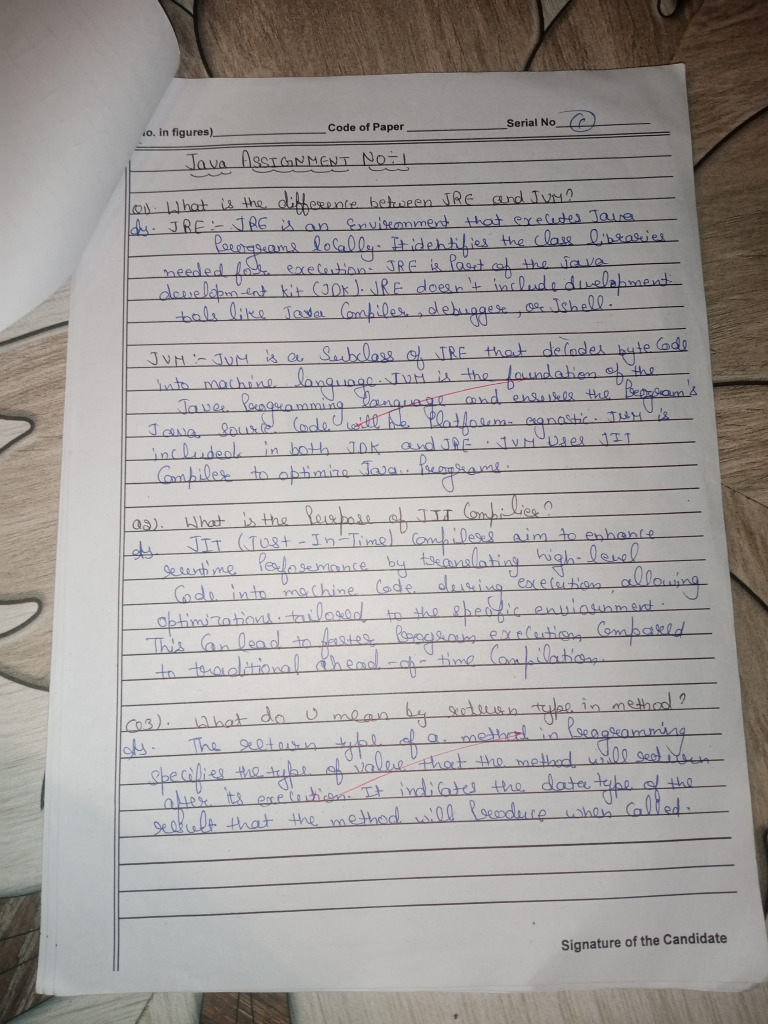 No. in figures)
Code of Paper
Serial No
JAVA ASSIGNMENT NO:-1
Q1). What is the difference between JRE and JVM?
Ans. JRE:- JRE is an Environment that executes Java
Programs locally. It identifies the class libraries
needed for execution. JRE is Part of the Java
development kit (JDK). JRE doesn't include development
tools like Java Compiler, debugger, or Jshell.
JVM:- JVM is a Subclass of JRE that decodes byte Code
into machine language. JVM is the foundation of the
Java Programming language and ensures the Program's
Java source Code will be Platform-agnostic. JVM is
included in both JDK and JRE. JVM Uses JIT
Compiler to optimize Java Programs.
Q2). What is the Purpose of JIT Compiler?
Ans. JIT (Just-In-Time) Compilers aim to enhance
runtime Performance by translating high-level
Code into machine Code during execution, allowing
optimizations tailored to the specific environment.
This Can lead to faster Program execution Compared
to traditional ahead-of-time Compilation.
Q3). What do U mean by return type in method?
Ans. The return type of a method in Programming
specifies the type of value that the method will return
after its execution. It indicates the data type of the
result that the method will Produce when Called.
Signature of the Candidate